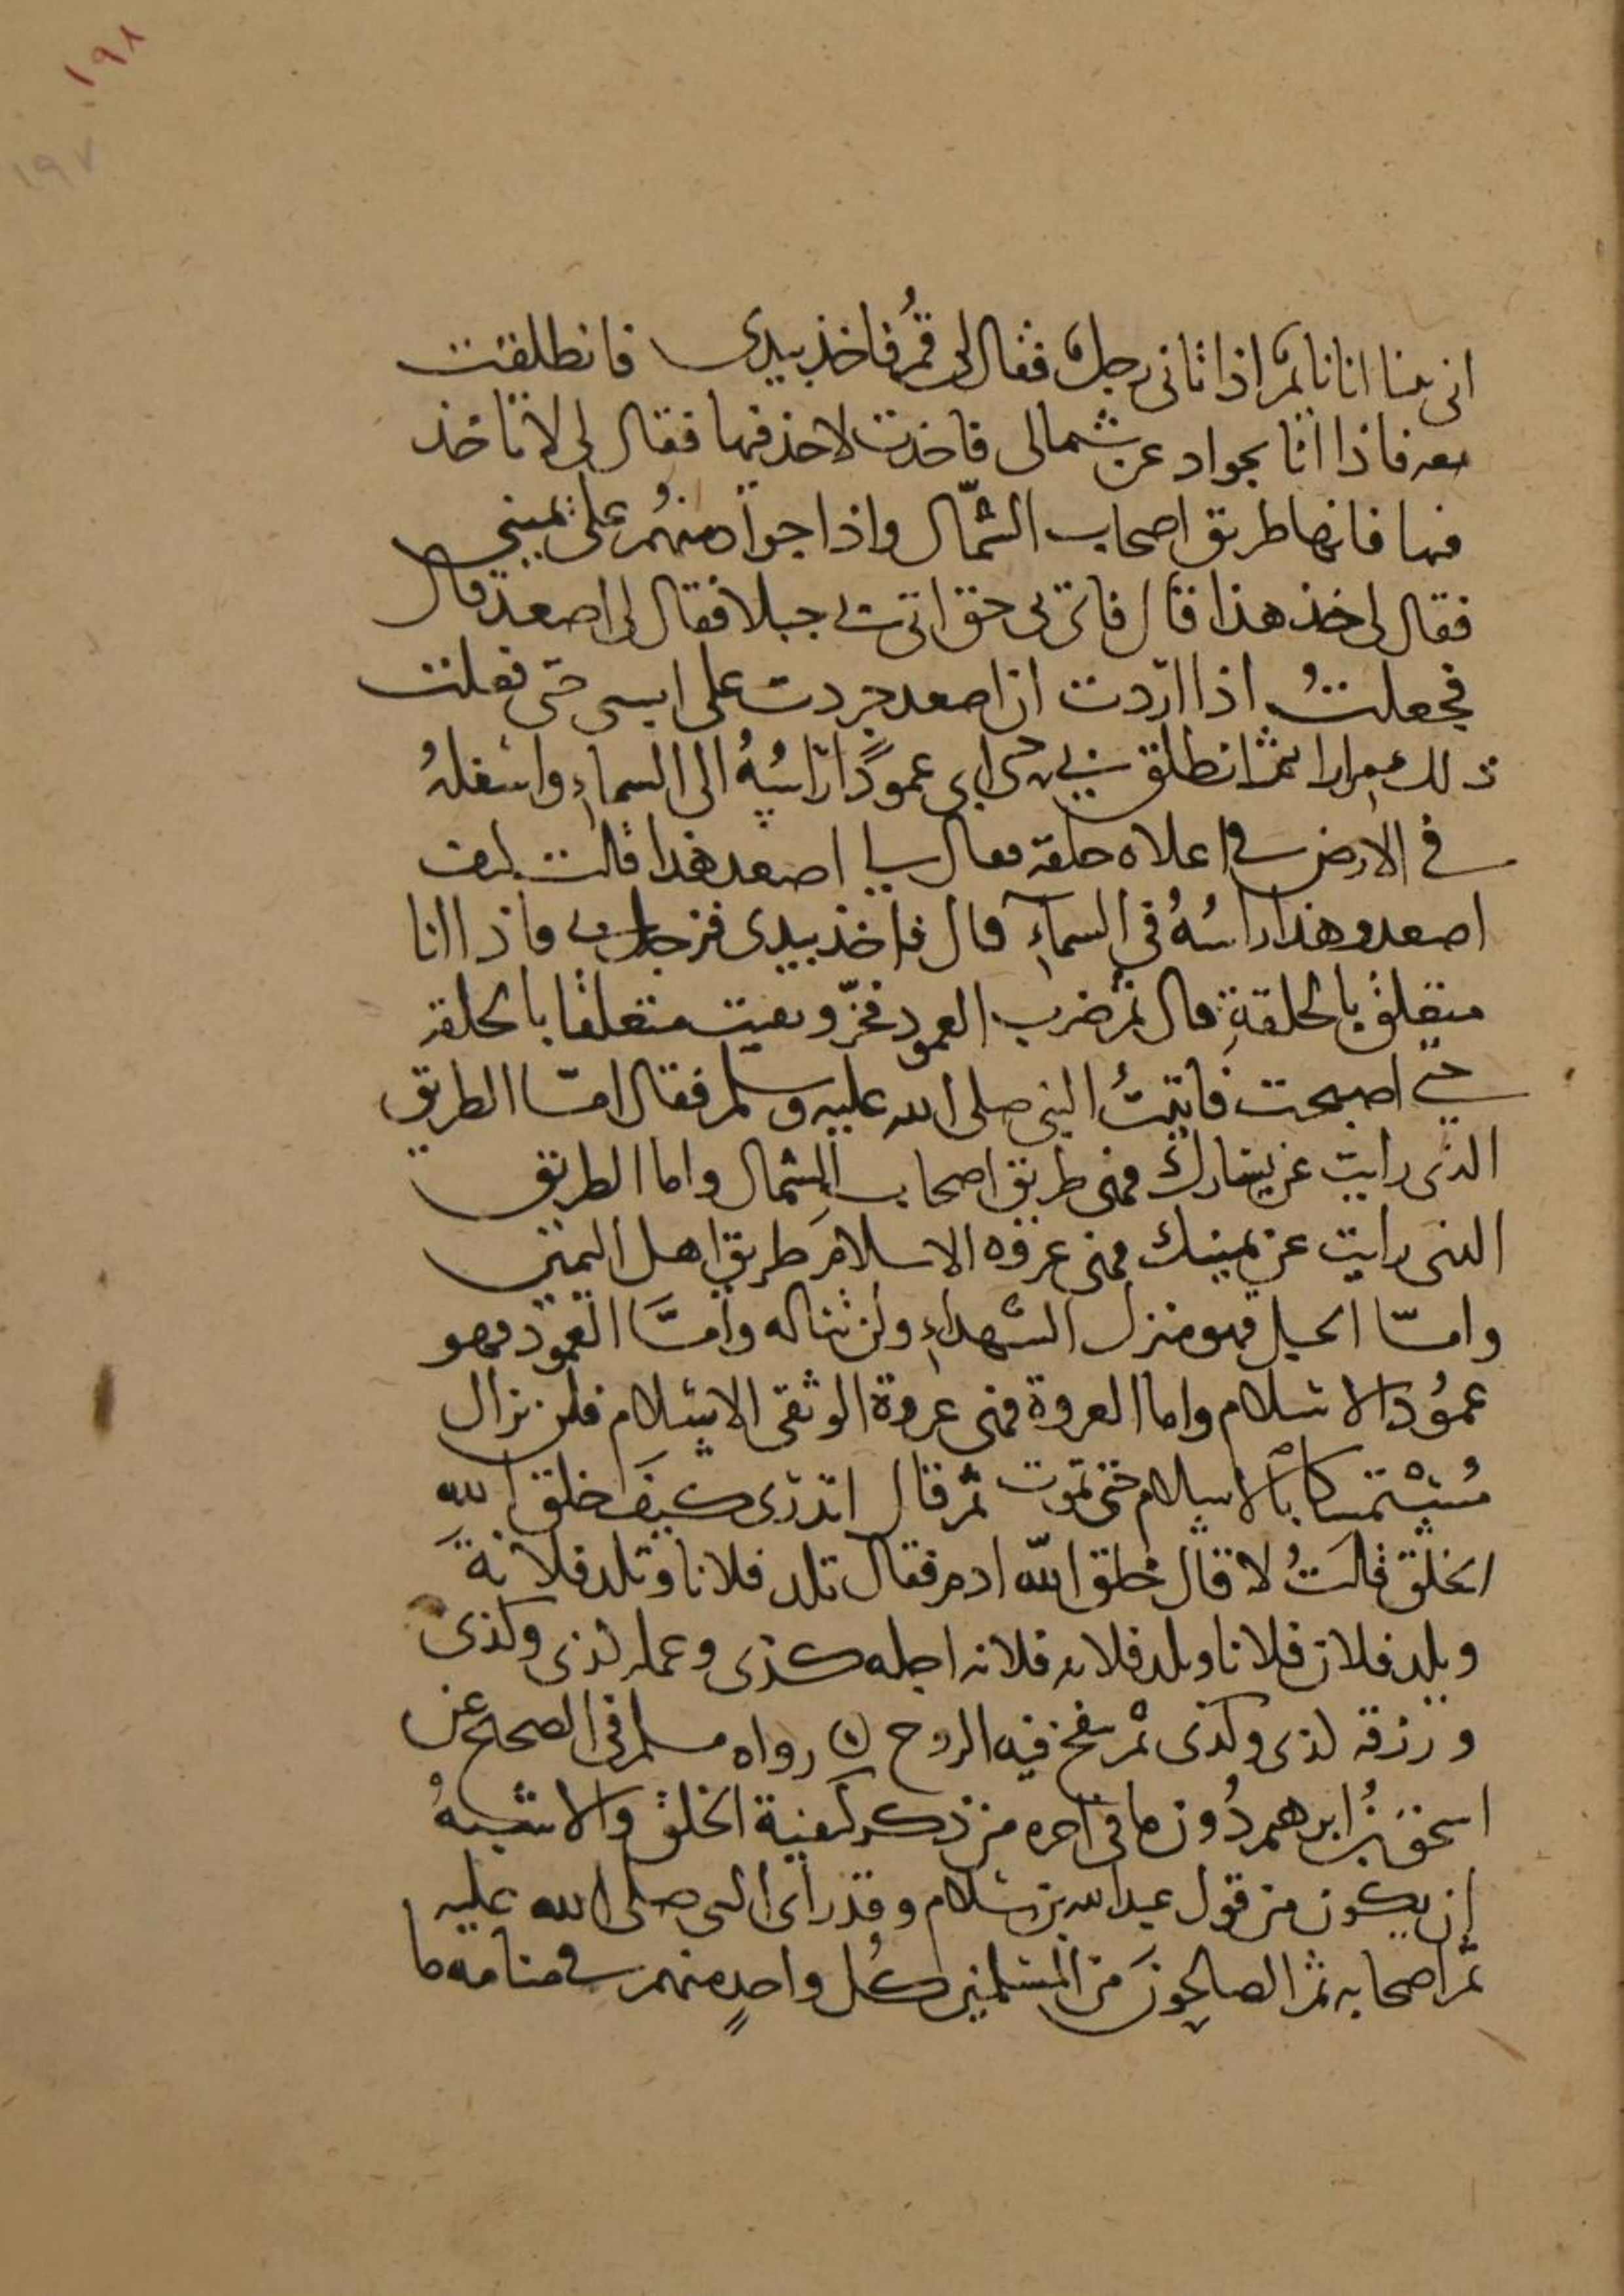 ١٩٨
١٩٧
انى بينا انا نائم اذ اتانى رجل فقال لى قم فاخذ بيدى فانطلقت
معه فاذا انا بجواد عن شمالى فاخذت لاخذ فيها فقال لى لا تاخذ
فيها فانها طريق اصحاب الشمال واذا جواد منهم على يمينى
فقال لى خذ هذا قال فاتى بى حتى اتى بى جبلا فقال لى اصعد قال
فجعلتُ اذا اردت ان اصعد خررت على استى حتى فعلت
ذلك مرارا ثم انطلق بى حتى اتى بى عمودًا راسُهُ الى السماءِ واسفلهُ
فى الارض فى اعلاه حلقة فقال لى اصعد هذا قالت كيف
اصعد وهذا راسُهُ فى السماءِ قال فاخذ بيدى فزجل بى فاذا انا
متعلق بالحلقةِ قال ثم ضرب العمود فخرّ وبقيت متعلقا بالحلقة
حتى اصبحت فاتيتُ النبى صلى الله عليه وسلم فقال امّا الطريق
الذى رايت عن يسارك فهى طريق اصحاب الشمال واما الطريق
الذى رايت عن يمينك فهى عروه الاسلام طريق اهل اليمين
وامّا الجبل فهو منزل الشهداءِ ولن تناله وامَّا العمود فهو
عمُود الاسلام واما العروة فهى عروة الوثقى الاسلام فلن تزال
مُسْتمسكا بالاسلام حتى تموت ثم قال اتدرى كيفَ خلق اللهِ
الخلق قالتُ لا قال خلق الله ادم فقال تلد فلانا وتلد فلانةَ
ويلد فلان فلانا وتلد فلانه فلانه اجله كذى وعمله كذى وكذى
ورزقه كذى وكذى ثم ينفخ فيه الروح رواه مسلم فى الصحيح عن
اسحق بنُ ابرهيم دُون ما فى اخره من ذكر كيفية الخلق والاشبهُ
ان يكون من قول عبد الله بن سلام وقد راى النبى صلى الله عليه
ثم اصحابه ثم الصالحونَ من المسلمين كل واحدٍ منهم فى منامه ما